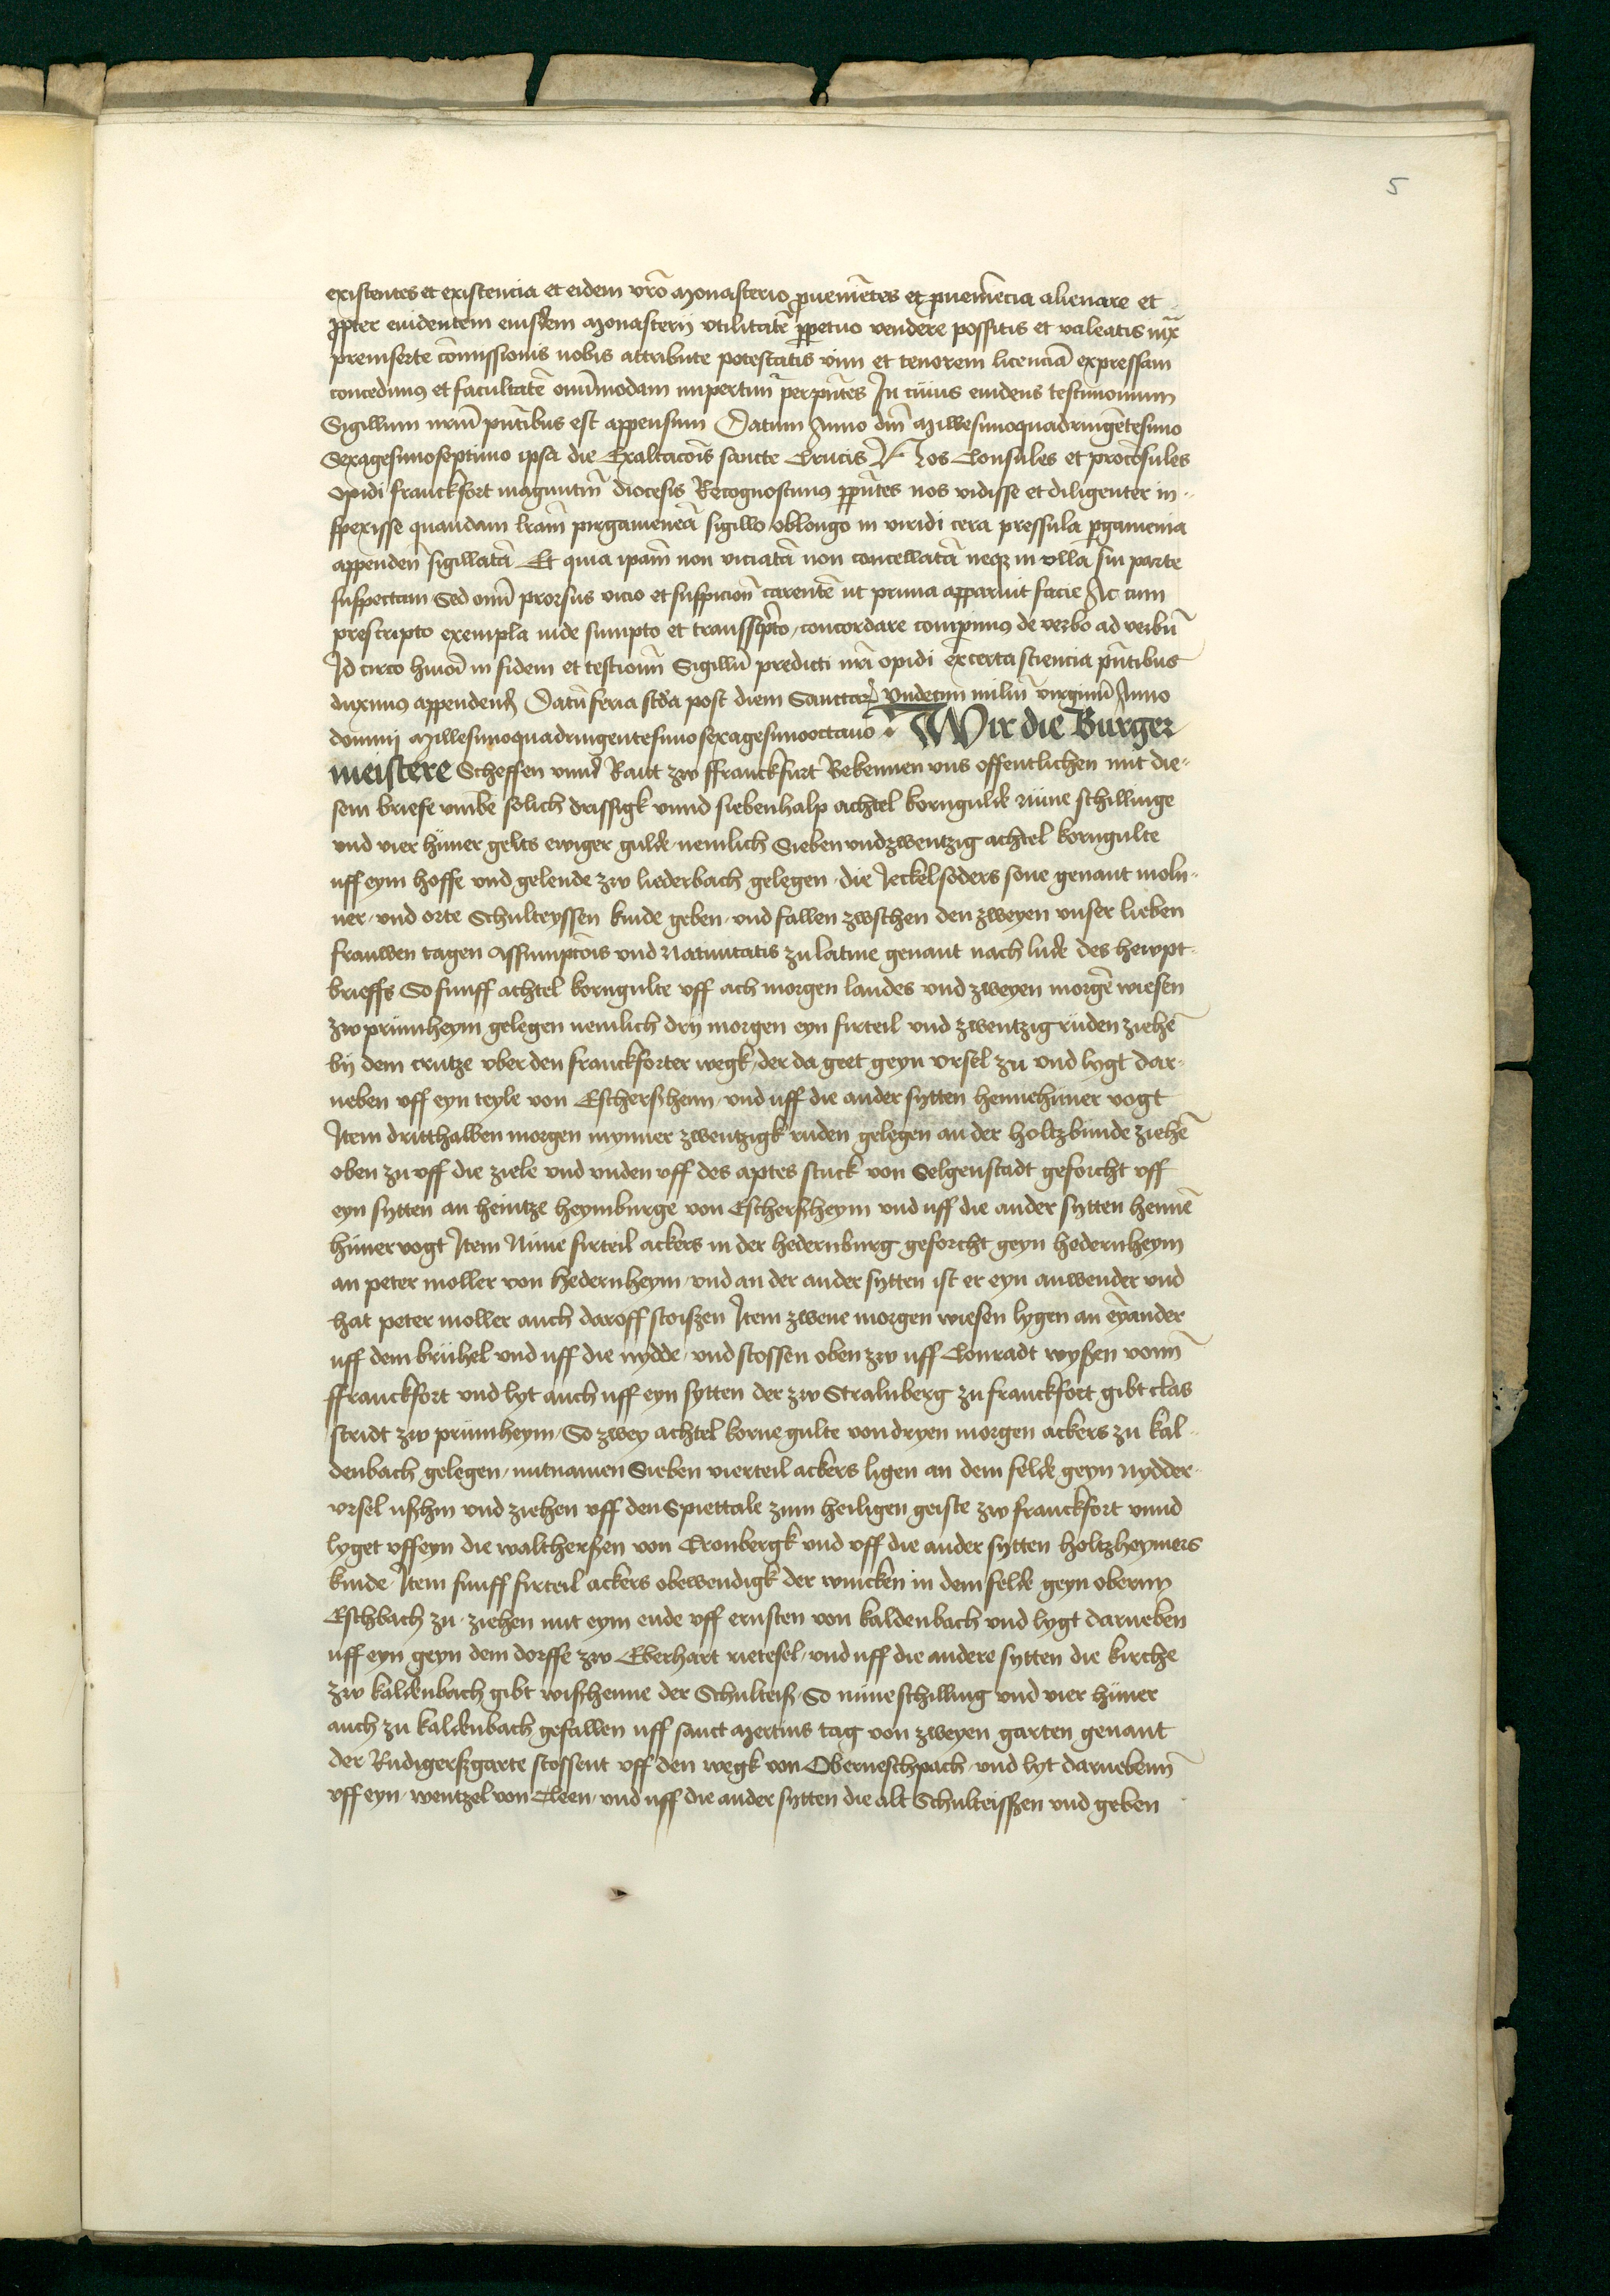 5
existentes et existencia et eidem vrō Monasterio ꝓueniētes et ꝓueniēcia alienare et
ꝓpter euidentem eiusdem Monasterij vtilitatē ꝑpetuo vendere possitis et valeatis iux̄
preinserte cōmissionis nobis attribute potestatis vim et tenorem licenciā expressam
concedimus et facultatē omīmodam impertimᷣ per pn̄tes In cuius euidens testimonium
Sigillum nrūm pn̄tibus est appensum Datum Anno dn̄i Millesimoquadringētesimo
Sexagesimoseptimo ipsa die Exaltacōis sancte Crucis Nos Consules et procōsules
opidi franckfort maguntin̄ diocesis Recognoscimus ꝑ pn̄tes nos vidisse et diligenter in-
spexisse quandam lrām pirgameneā sigillo oblongo in viridi cera pressula ꝑgamenia
appenden̄ sigillatā Et quia ipām non viciatā non concellatā neqꝫ in vlla sui parte
suspectam Sed omī prorsus vicio et suspicion̄ carentē ut prima apparuit facie Ac cum
prescripto exempla inde sumpto et transscpto concordare comperimus de verbo ad verbū
Id circo huicā in fidem et testioniū Sigillū predicti nrī opidi ex certa sciencia pn̄tibus
duximus appendend Datū feria scd̄a post diem Sanctarꝝ Vndecim miliū virginū Anno
dominj Millesimoquadringentesimosexagesimooctauo Wir die Burger
meistere Scheffen vnnd Raut zw ffranckfurt Bekennen vns offentlichen mit die-
sem briefe vmbe solich drissigk vnnd siebenhalp achtel korngulde nüne schillinge
vnd vier hüner gelts ewiger gulde nemlich Sieben vnd zwentzig achtel korngulte
uff eym hoffe vnd gelende zw liederbach gelegen die Jeckel soders sone genant moln-
ner vnd orte Schulteyssen kinde geben vnd fallen zwschen den zweyen vnser lieben
frauwen tagen Assumptōis vnd Natiuitatis zu latine genant nach lude des hewpt-
brieffs So funff achtel korngulte vff ach morgen landes vnd zweyen morgē wiesen
zw prümheym gelegen nemlich dry morgen eyn firteil vnd zwentzig rüden ziehē
by dem crutze vber den franckforter wegk der da geet geyn vrsel zu vnd lygt dar-
neben vff eyn teyle von Eschersheim vnd uff die ander sytten hennehüner vogt
Item dritthalben morgen mynner zwentzigk ruden gelegen an der holtzbunde ziehē
oben zu vff die ziele vnd vnden vff des aptes stuck von Selgenstadt geforcht vff
eyn sytten an heintze heymburge von Eschersheym vnd uff die ander sytten hennē
hüner vogt Item Nüne firteil ackers in der hedernburg geforcht geyn hedernheym
an peter moller von hedernheym vnd an der ander sytten ist er eyn anwender vnd
hat peter moller auch daroff stoissen Item zwene morgen wiesen lygen an eyāander
uff dem brühel vnd uff die nydde vnd stossen oben zw uff Conradt wyssen vonn̄
ffranckfort vnd lyt auch uff eyn sytten der zw Stralnberg zu franckfort gibt clas
stridt zw prümheym So zwey achtel korne gulte von dryen morgen ackers zu kal-
denbach gelegen mitnamen Sieben vierteil ackers ligen an dem felde geyn nydder-
vrsel ußhin vnd ziehen vff den Spiettale zum heiligen geiste zw franckfort vnnd
lyget vff eyn die walthersen von Cronbergk vnd vff die ander sytten holtzheymers
kinde Item funff firteil ackers obewendigk der wincken in dem felde geyn obernn
Eschbach zu ziehen mit eym ende vff ernsten von kaldenbach vnd lygt darneben
uff eyn geyn dem dorffe zw Eberhart rietesel vnd uff die andere sytten die kirche
zw kaldenbach gibt wißhenne der Schulteiß So nüne schilling vnd vier hüner
auch zu kaldenbach gefallen uff sanct Mertins tag von zweyen garten genant
der Rudigerßgarte stossent vff den wegk von Oberneschpach vnd lyt darnebenn̄
vff eyn wentzel von Cleen vnd uff die ander sytten die alt Schulteissen vnd geben